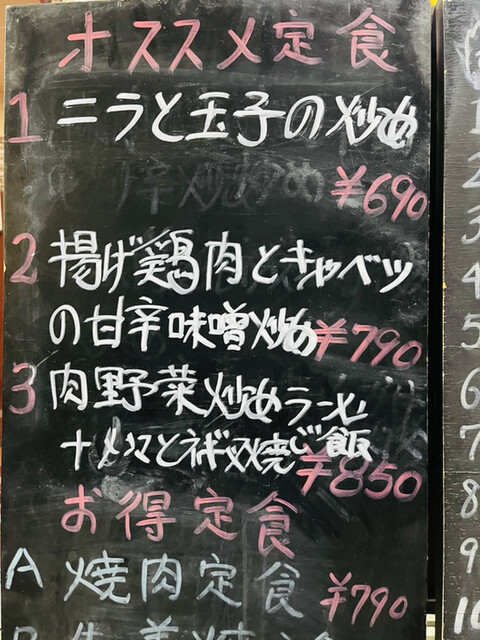 オススメ定食
1 ニラと玉子の炒め
¥690
2 揚げ鶏肉とキャベツ
の甘辛味噌炒め ¥790
3 肉野菜炒めラーメン
ご飯
¥850
お得定食
A 焼肉定食 ¥790
1
2
3
4
5
6
7
8
9
10